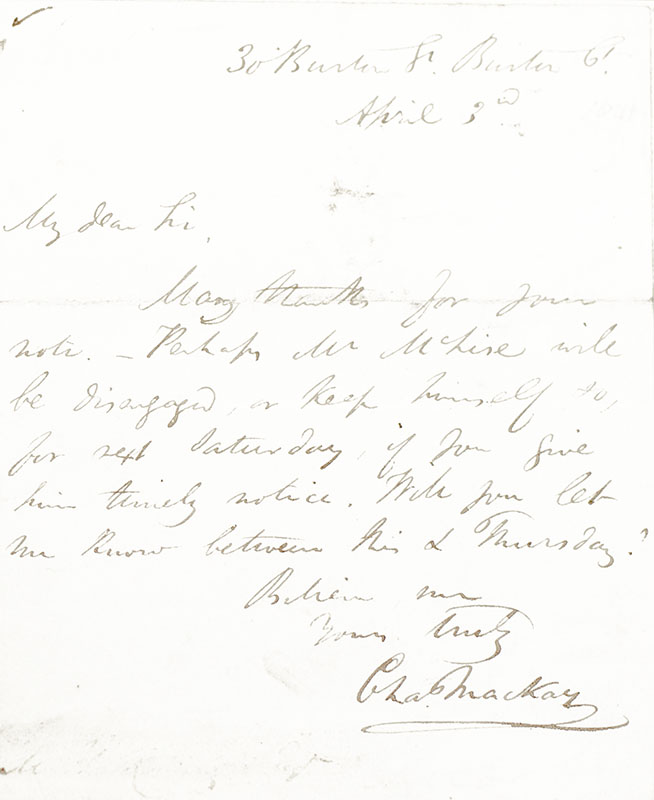 30 Burton St. Burton Ct.
April 3rd
My dear Sir,
Many thanks for your
note. – Perhaps Mr McLise will
be disengaged, or keep himself so,
for next Saturday, if you give
him timely notice. Will you let
me know between this & Thursday?
Believe me
Yours truly
Chas Mackay